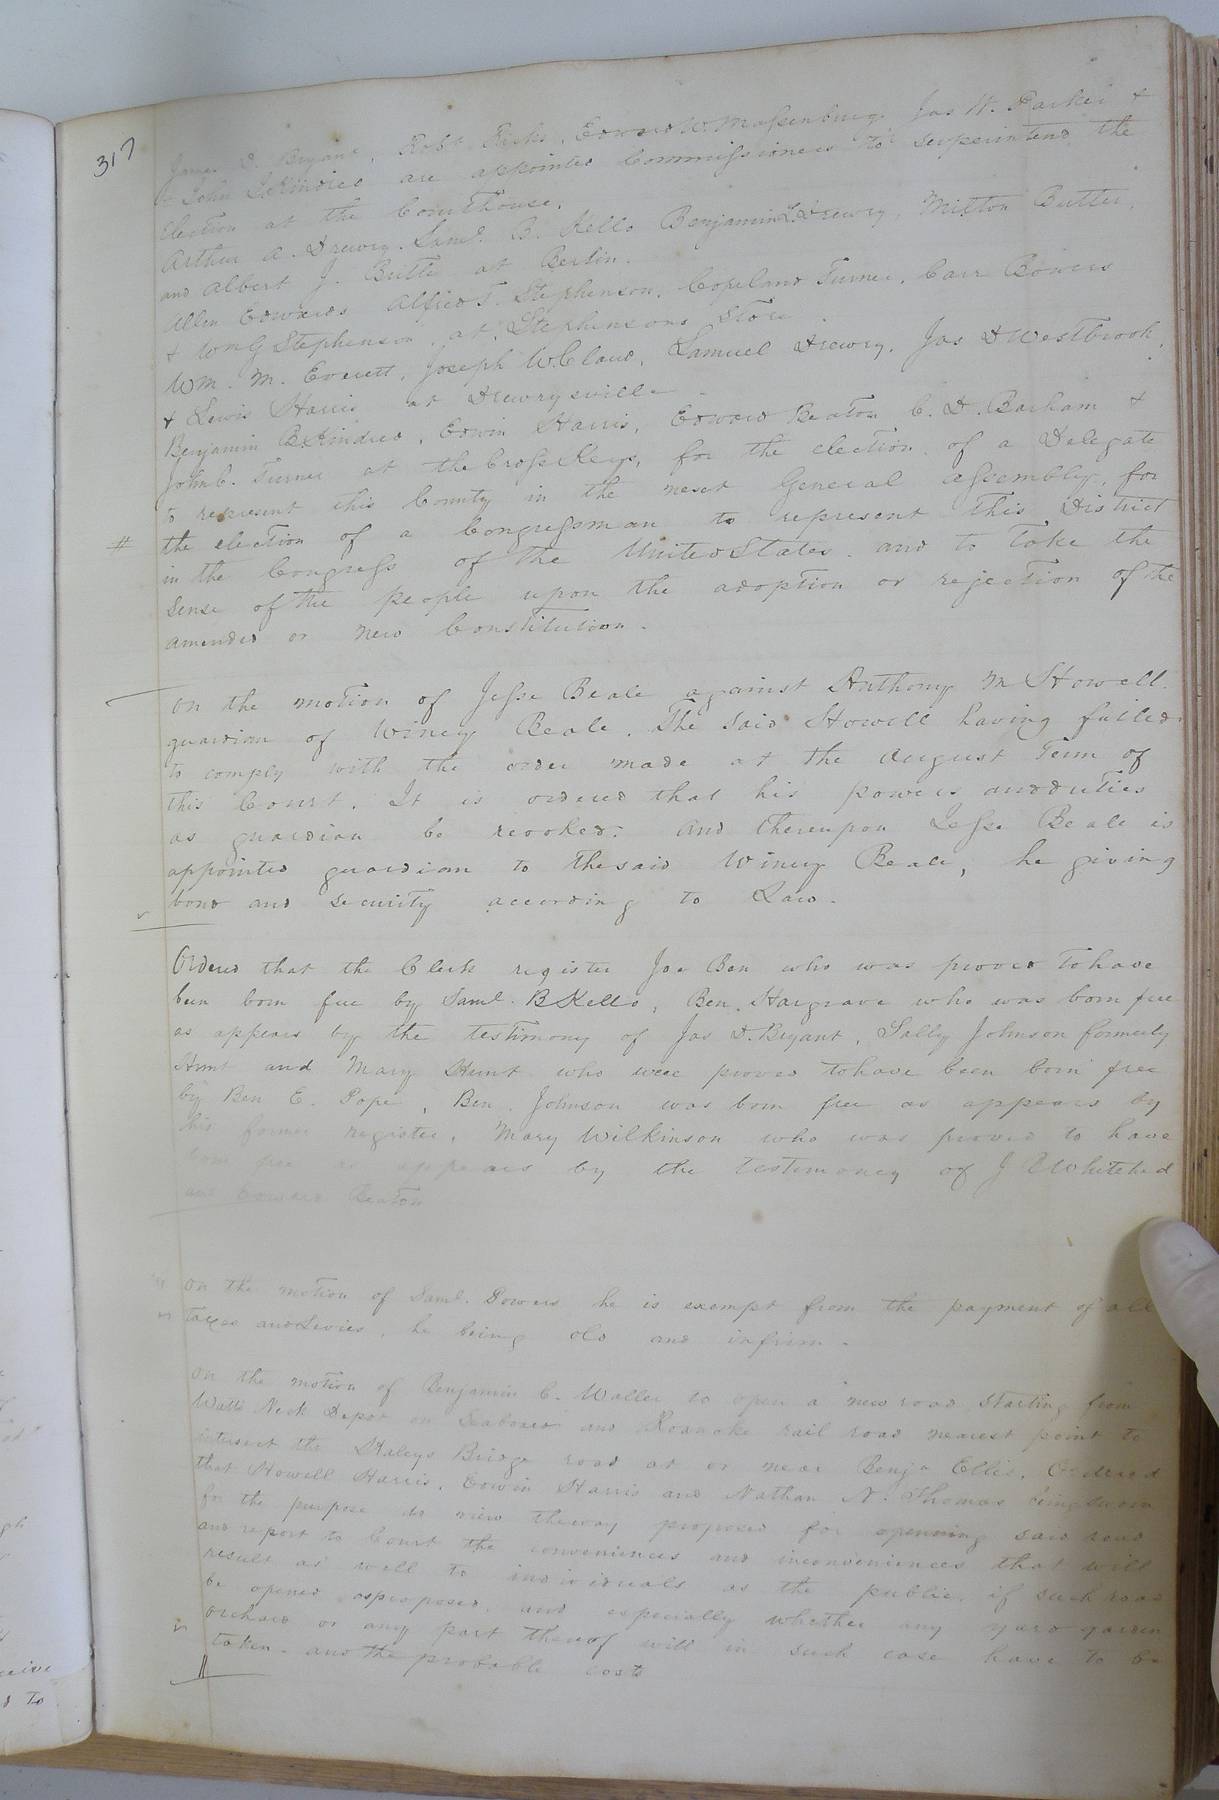 317
James D. Bryant, Robt Ricks, Edward W. Massenburg, Jas W. Parker &
John S. Kindred are appointed Commissioners to superintend the
Election at the Courthouse.
Arthur A. Drewry. Saml. B. Kello Benjamin L. Drewry, Milton Butler,
and Albert J. Britt at Berlin.
Allen Edwards Alfred T. Stephenson, Copeland Turner, Carr Bowers
& Wm G Stephenson, at Stephensons Store.
Wm. M. Everett, Joseph W. Claud, Samuel Drewry, Jas D Westbrook,
& Lewis Harris at Drewrysville.
Benjamin B. Kindred, Edwin Harris, Edward Beaton C. D. Barham &
John C. Turner at the Cross Keys, for the election of a Delegate
to represent this County in the next General Assembly, for
# the election of a Congressman to represent this District
in the Congress of the United States. and to take the
sense of the people upon the adoption or rejection of the
amended or new Constitution.
On the motion of Jesse Beale against Anthony M Howell
guardian of Winey Beale. The said Howell having failed
to comply with the order made at the August Term of
this Court. It is ordered that his powers and duties
as guardian be revoked: And thereupon Jesse Beale is
appointed guardian to the said Winey Beale, he giving
bond and security according to Law.
Ordered that the Clerk register Joe Ben who was proved to have
been born free by Saml. B Kello, Ben. Hargrave who was born free
as appears by the testimony of Jas D. Bryant, Sally Johnson formerly
Hunt and Mary Hunt who were proved to have been born free
by Ben E. Pope, Ben. Johnson was born free as appears by
his former register, Mary Wilkinson who was proved to have
born free as appears by the testimony of J Whitehed
and Edward Beaton
On the motion of Saml. Bowers he is exempt from the payment of all
taxes and Levies, he being old and infirm.
On the motion of Benjamin C. Waller to open a new road starting from
Watts Neck Depot on Seaboard and Roanoke rail road nearest point to
intersect the Haleys Bridge road at or near Benja Ellis, Ordered
that Howell Harris, Edwin Harris and Nathan N. Thomas being sworn
for the purpose do view the way proposed for openning said road
and report to Court the conveniences and inconveniences that will
result as well to individuals as the public, if such road
be opened as proposed, and especially whether any yard garden
orchard or any part thereof will in such case have to be
taken. and the probable costs